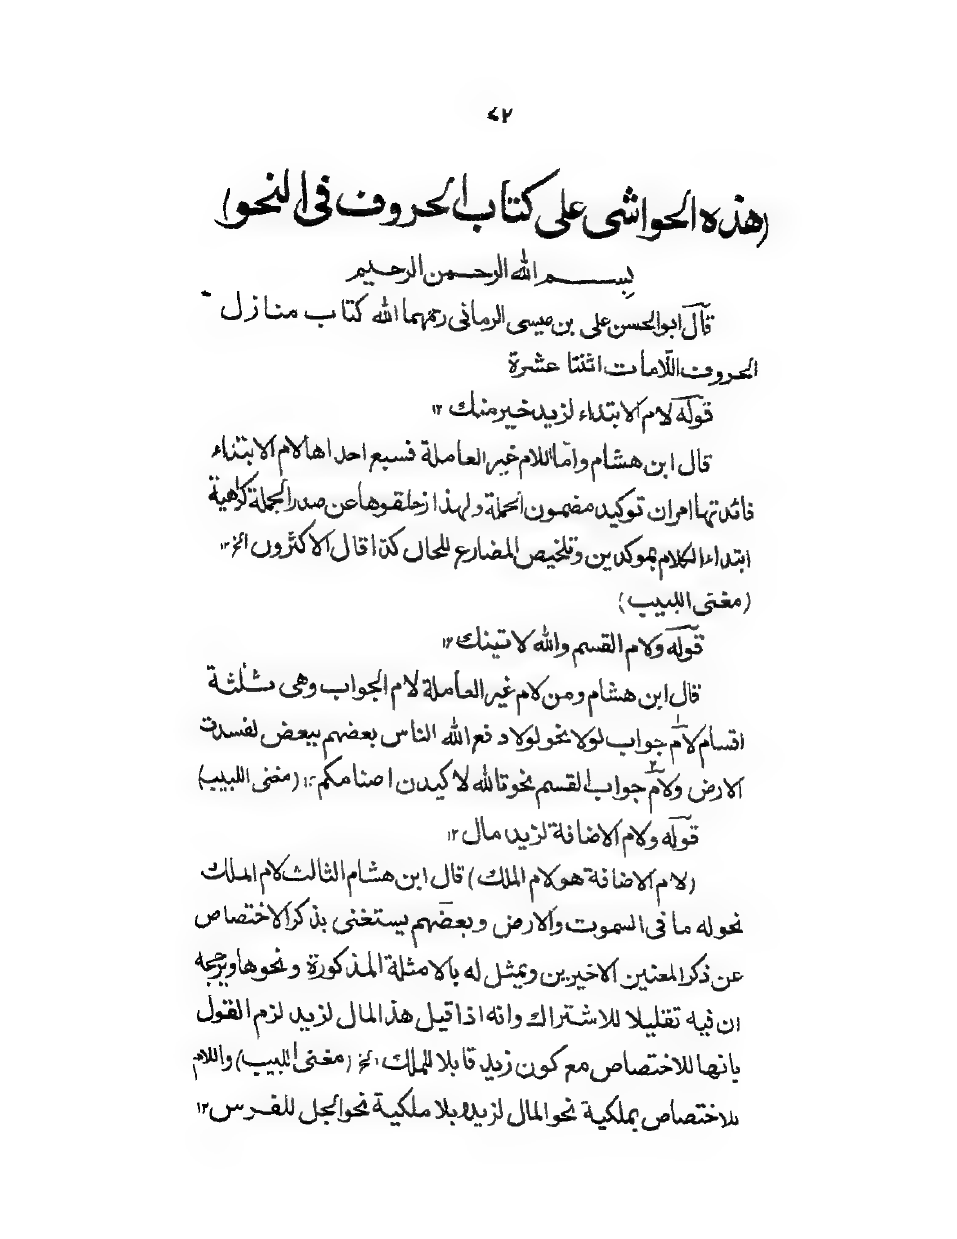 ٤٢
(هذه الحواشى على كتاب الحروف فى النحو)
بسم الله الرحمن الرحيم
قال ابو الحسن على بن عيسى الرمانى رحمهما الله كتاب منازل
الحروف اللامات اثنتا عشرة
قوله لام الابتداء لزيد خير منك ١٢
قال ابن هشام واما اللام غير العاملة فسبع احداها لام الابتداء
فائدتها امران توكيد مضمون الجملة ولهذا زحلقوها عن صدر الجملة كراهية
ابتداء الكلام بموكدين وتلخيص المضارع للحال كذا قال الاكثرون الخ ١٢
(مغنى اللبيب)
قوله ولام القسم والله لاتينك ١٢
قال ابن هشام ومن لام غير العاملة لام الجواب وهى ثلثة
اقسام لام جواب لولا نحو لولا دفع الله الناس بعضهم ببعض لفسدت
الارض ولام جواب القسم نحو تالله لاكيدن اصنامكم ١٢ (مغنى اللبيب)
قوله ولام الاضافة لزيد مال ١٢
(لام الاضافة هو لام الملك) قال ابن هشام الثالث لام الملك
نحو له ما فى السموت والارض وبعضهم يستغنى بذكر الاختصاص
عن ذكر المعنين الاخيرين ويمثل له بالامثلة المذكورة ونحوها ويرجحه
ان فيه تقليلا للاشتراك وانه اذا قيل هذ المال لزيد لزم القول
بانها للاختصاص مع كون زيد قابلا للملك الخ (مغنى اللبيب) واللام
للاختصاص بملكية نحو المال لزيد وبلا ملكية نحو الجل للفرس ١٢